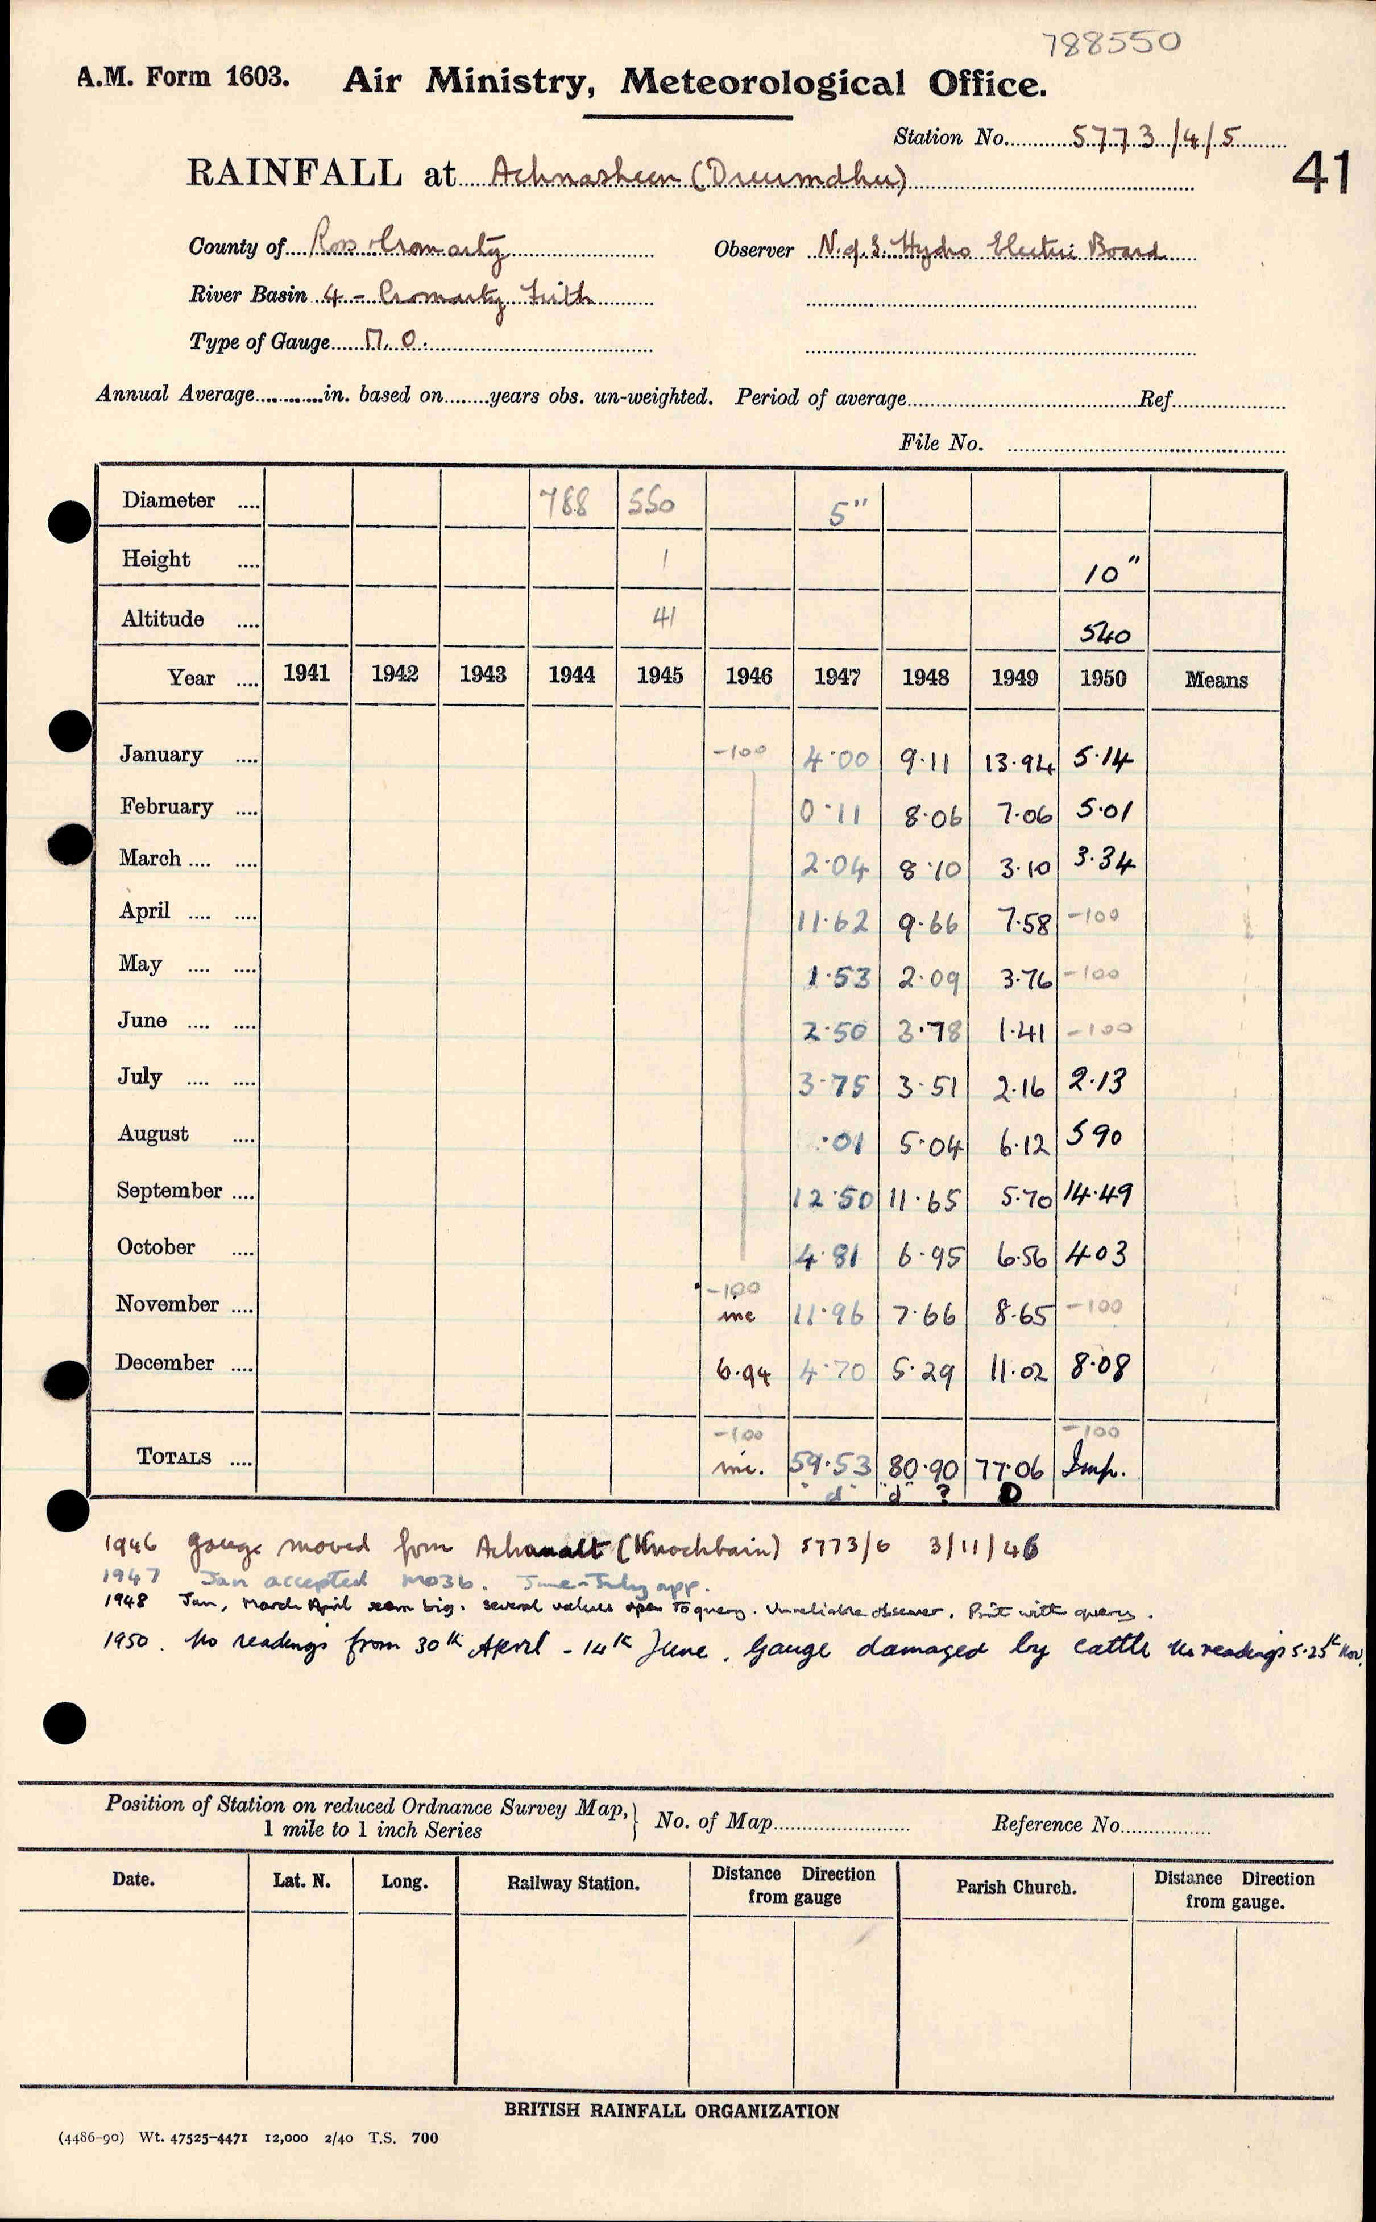 788550
A.M. Form 1603. Air Ministry, Meteorological Office.
Station No. 5773/4/5
41
RAINFALL at Achnasheen (Drumdhu)
County of Ross & Cromarty Observer N. of S. Hydro Electric Board
River Basin 4 - Cromarty Firth
Type of Gauge M.O.
Annual Average in. based on years obs. un-weighted. Period of average Ref.
File No.
Diameter 788 550 5"
Height 1 10"
Altitude 41 540
Year 1941 1942 1943 1944 1945 1946 1947 1948 1949 1950 Means
January -100 4.00 9.11 13.94 5.14
February 0.11 8.06 7.06 5.01
March 2.04 8.10 3.10 3.34
April 11.62 9.66 7.58 -100
May 1.53 2.09 3.76 -100
June 2.50 3.78 1.41 -100
July 3.75 3.51 2.16 2.13
August .01 5.04 6.12 5 90
September 12.50 11.65 5.70 14.49
October 4.81 6.95 6.56 4.03
November -100 inc 11.96 7.66 8.65 -100
December 6.94 4.70 5.29 11.02 8.08
TOTALS -100 inc. 59.53 80.90 77.06 -100 Imp.
"d" "d" ? D
1946 gauge moved from Achanalt (Knockbain) 5773/6 3/11/46
1947 Jan accepted M03b. June-July app.
1948 Jan, March April seem big. several values open to query. Unreliable observer. Print with query.
1950. No readings from 30th April - 14th June. Gauge damaged by cattle No readings 5-25th Nov.
Position of Station on reduced Ordnance Survey Map, 1 mile to 1 inch Series } No. of Map Reference No.
Date. Lat. N. Long. Railway Station. Distance Direction from gauge Parish Church. Distance Direction from gauge.
BRITISH RAINFALL ORGANIZATION
(4486-90) Wt. 47525-4471 12,000 2/40 T.S. 700